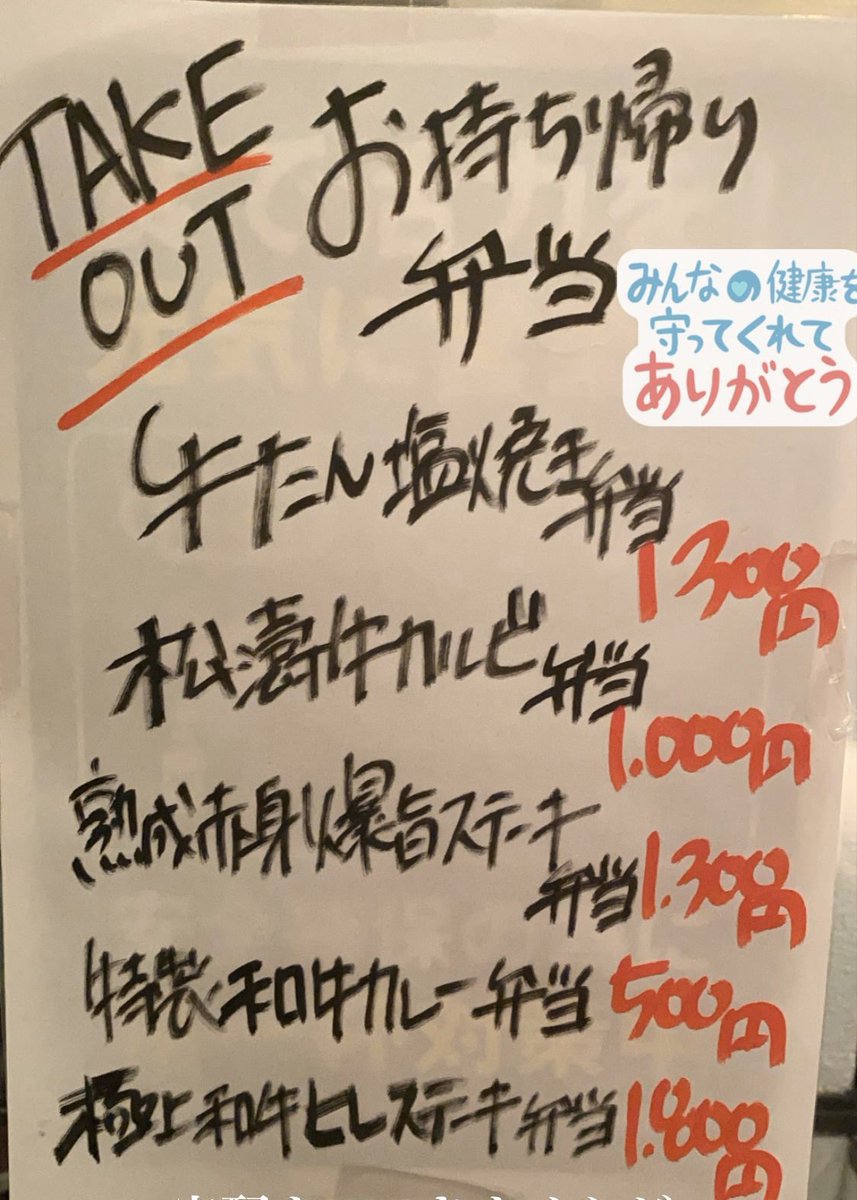 TAKE OUT
お持ち帰り
弁当
みんなの健康を
守ってくれて
ありがとう
牛たん塩焼き弁当
1300円
松濤牛カルビ弁当
1.000円
熟成赤身爆旨ステーキ
弁当1.300円
特製和牛カレー弁当 500円
極上和牛ヒレステーキ弁当 1.800円